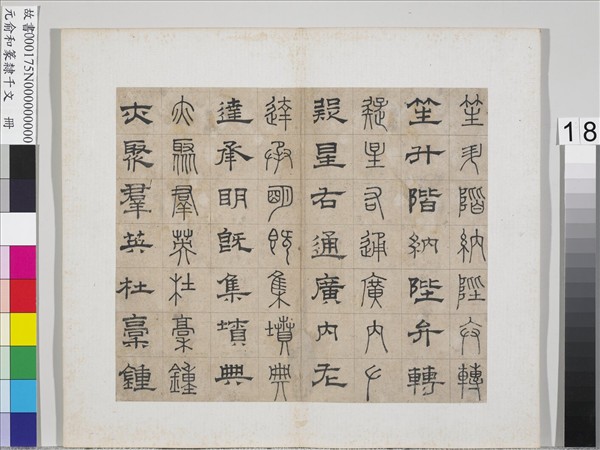 笙升階納陛弁轉
笙升階納陛弁轉
疑星右通廣內左
疑星右通廣內左
達承明既集墳典
達承明既集墳典
亦聚羣英杜稾鍾
亦聚羣英杜稾鍾
故書000175N000000000
元俞和篆隸千文 冊
18